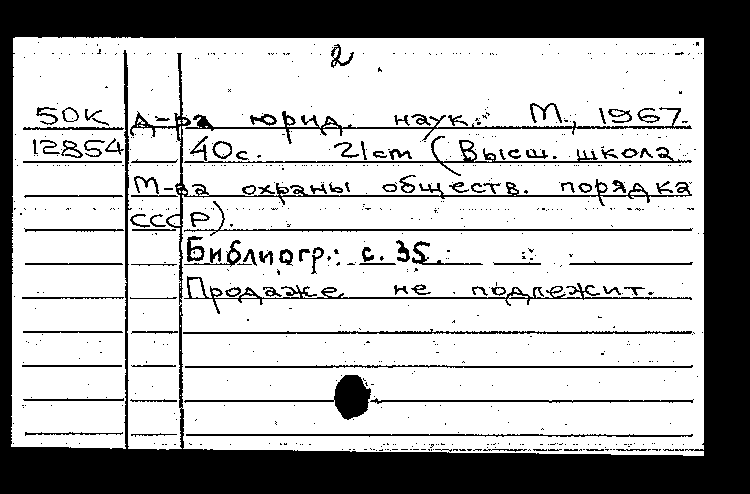 2
50К д-ра юрид. наук. М., 1967.
12854 40с. 21см (Высш. школа
М-ва охраны обществ. порядка
СССР).
Библиогр.: с. 35.
Продаже не подлежит.